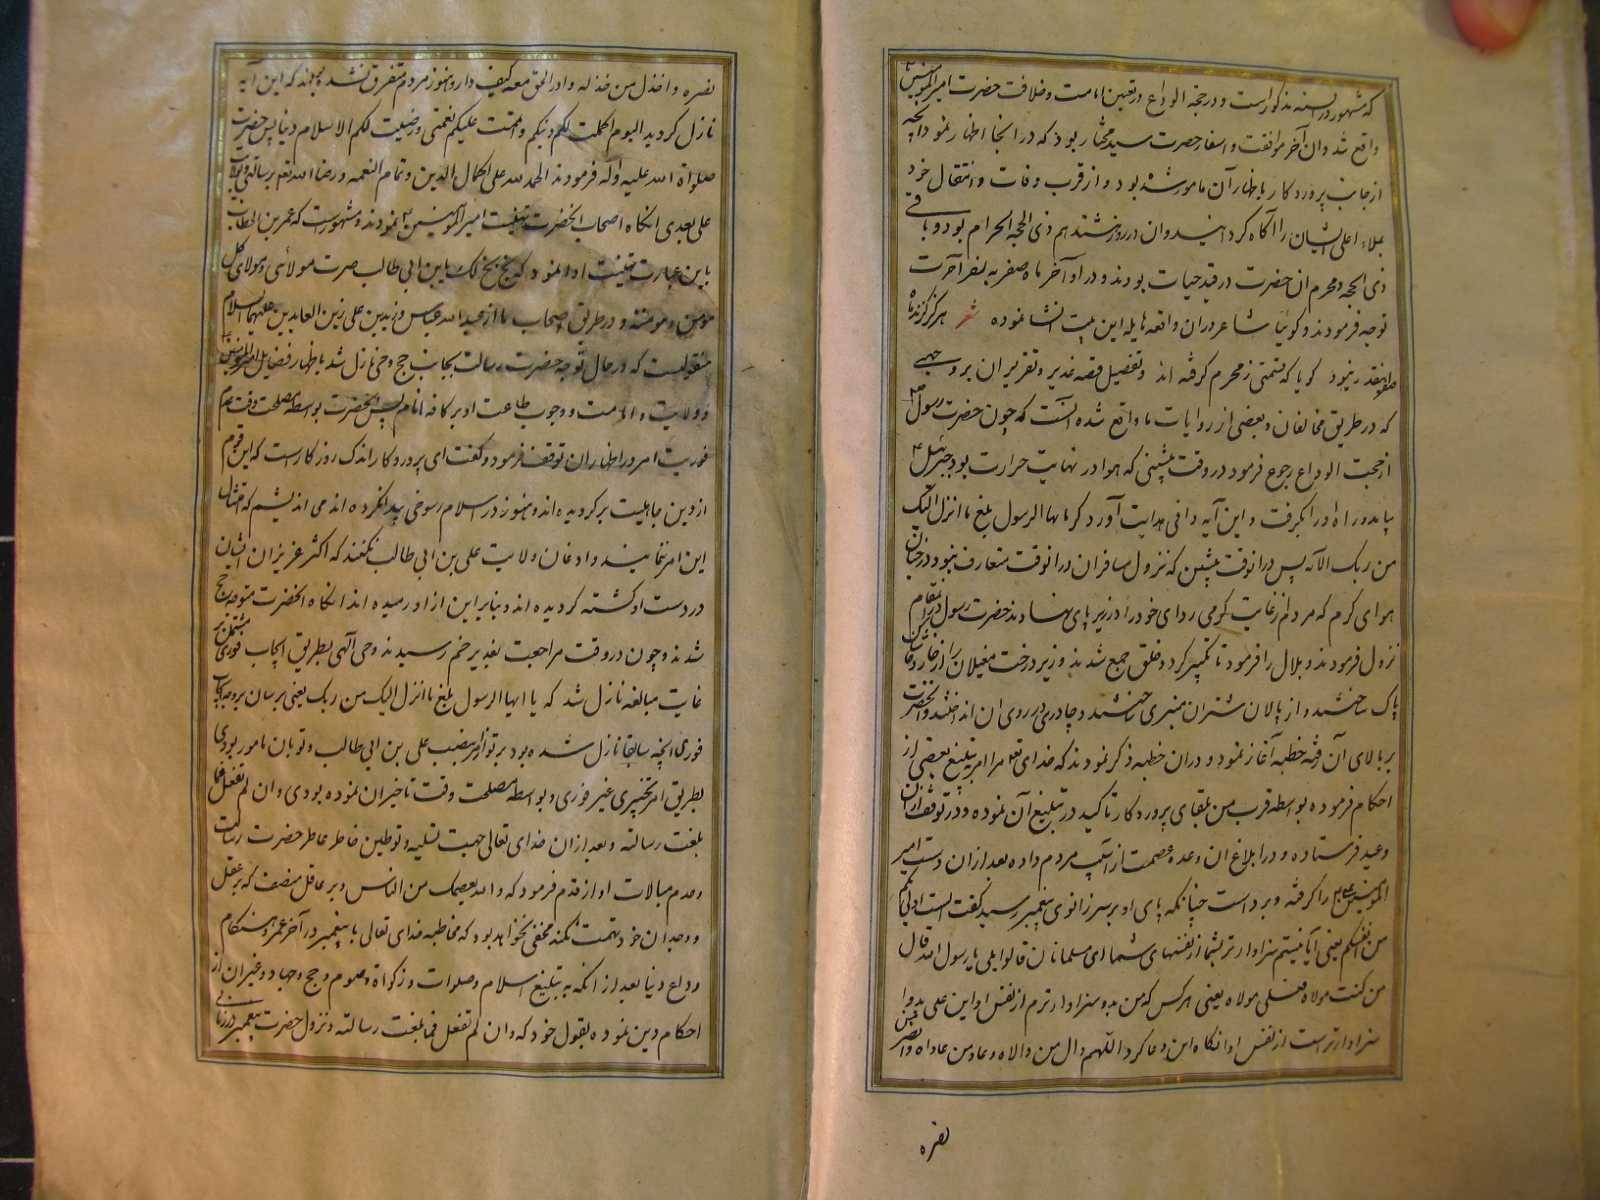 که مشهور در السنه مذکور است و در حجة الوداع در تعیین امامت و خلافت حضرت امیر المؤمنین
واقع شد وان آخر موافقت و اسفار حضرت سید مختار بود که در انجا اظهار نمود انچه
از جانب پروردکار باظهار آن مامور شده بود و از قرب وفات و انتقال خود
بملاء اعلی ایشان را آکاه کردانیدند وان در روز هشتدهم ذی الحجة الحرام بود و باقی
ذی الحجه و محرم ان حضرت در قید حیات بودند و در اواخر ماه صفر به سفر آخرت
توجه فرمودند و کوئیا شاعر در ان واقعه هایله این بیت انشا نموده شعر هرکز کزند ماه
صفر اینقدر نبود کویا که قسمتی ز محرم کرفته اند و تفصیل قصه غدیر و تقریر ان بر وجهی
که در طریق مخالفان و بعضی از روایات ما واقع شده انست که چون حضرت رسول
از حجت الوداع رجوع فرمود در وقت پیشینی که هوا در نهایت حرارت بود جبرئیل
بیامد و راه او را بکرفت و این آیه وافی هدایت آورد که یا ایها الرسول بلغ ما انزل الیک
من ربک الآیه پس در انوقت پیشین که نزول مسافران در انوقت متعارف نبود و در چنان
هوای کرم که مردم از غایت کرمی ردای خود را در زیر پای می نهادند حضرت رسول در انمقام
نزول فرمودند و بلال را فرمود تا تکبیر کرد و خلق جمع شدند و زیر درخت مغیلان را از خار و خاشاک
پاک ساختند و از پالان شتران منبری ساختند و چادری بر روی ان انداختند و انحضرت
بر بالای آن رفته خطبه آغاز نمود و دران خطبه ذکر نمودند که خدای تع مرا امر بتبلیغ بعضی از
احکام فرموده بواسطه قرب من بلقای پروردکار تاکید در تبلیغ آن نموده و در توقف ازان
وعید فرستاده و در ابلاغ ان وعده عصمت از آسیب مردم داده بعد ازان دست امیر
المومنین علی را کرفته و برداشت چنانکه پای او بر سر زانوی پیغمبر رسید کفت الست اولی بکم
من انفسکم یعنی آیا نیستم سزاوارتر بشما از نفسهای شما ای مسلمانان قالوا بلی یا رسول الله قال
من کنت مولاه فعلی مولاه یعنی هر کس که من بدو سزاوارترم از نفس او این علی بدو
سزاوارتر است از نفس او انکاه این دعا کرد اللهم وال من والاه و عاد من عاداه و انصر من
نصره
نصره و اخذل من خذله و ادر الحق معه کیف دار و هنوز مردم متفرق نشده بودند که این آیه
نازل کردید الیوم اکملت لکم دینکم و اتممت علیکم نعمتی و رضیت لکم الاسلام دینا پس حضرت
صلواة الله علیه و آله فرمودند الحمد لله علی اکمال الدین و تمام النعمه و رضا الله تعم رسالتی و بولایت
علی بعدی انکاه اصحاب انحضرت تهنیت امیر المومنین نمودند و مشهور ست که عمر بن الخطاب
باین عبارت تهنیت ادا نمود که بخ بخ لک یابن ابی طالب صرت مولائی و مولای کل
مؤمن و مومنة و در طریق اصحاب ما از عبد الله عباس و زید بن علی زین العابدین علیهما السلام
منقولست که در حال توجه حضرت رسالت بجانب حج وحی نازل شد باظهار فضایل امیر المؤمنین
و ولایت و امامت و وجوب طاعت او بر کافه انام پس انحضرت بواسطه مصلحت وقت و عدم
فوریت امر در اظهار ان توقف فرمود و کفت ای پروردکار اندک روزکارست که این قوم
از دین جاهلیت برکردیده اند و هنوز در اسلام رسوخی پیدا نکرده اند می اندیشم که امتثال
این امر ننمایند و اذعان ولایت علی بن ابی طالب نکنند که اکثر عزیزان ایشان
در دست او کشته کردیده اند و بنابراین از او رمیده اند انکاه انحضرت متوجه حج
شدند و چون در وقت مراجعت بغدیر خم رسیدند وحی آلهی بطریق ایجاب فوری مشتمل بر
غایت مبالغه نازل شد که یا ایها الرسول بلغ ما انزل الیک من ربک یعنی برسان بر وجه ایجاب
فوری انچه سابقا نازل شده بود بر تو از نصب علی بن ابی طالب و تو بان مامور بودی
بطریق امر تخییری غیر فوری و بواسطه مصلحت وقت تاخیران نموده بودی و ان لم تفعل فما
بلغت رسالته و بعد ازان خدای تعالی جهت تسلیه و توطین خاطر عاطر حضرت رسالت
و عدم مبالات او از قدم فرمود که والله یعصمک من الناس و بر عاقل منصف که بر عقل
و وجدان خود تهمت نکند مخفی نخواهد بود که مخاطبه خدای تعالی با پیغمبر در آخر عمر و هنکام
وداع دنیا بعد از انکه به تبلیغ اسلام و صلوات و زکواة و صوم و حج و جهاد و غیران از
احکام دین نموده بقول خود که وان لم تفعل فما بلغت رسالته و نزول حضرت پیغمبر در زمانی